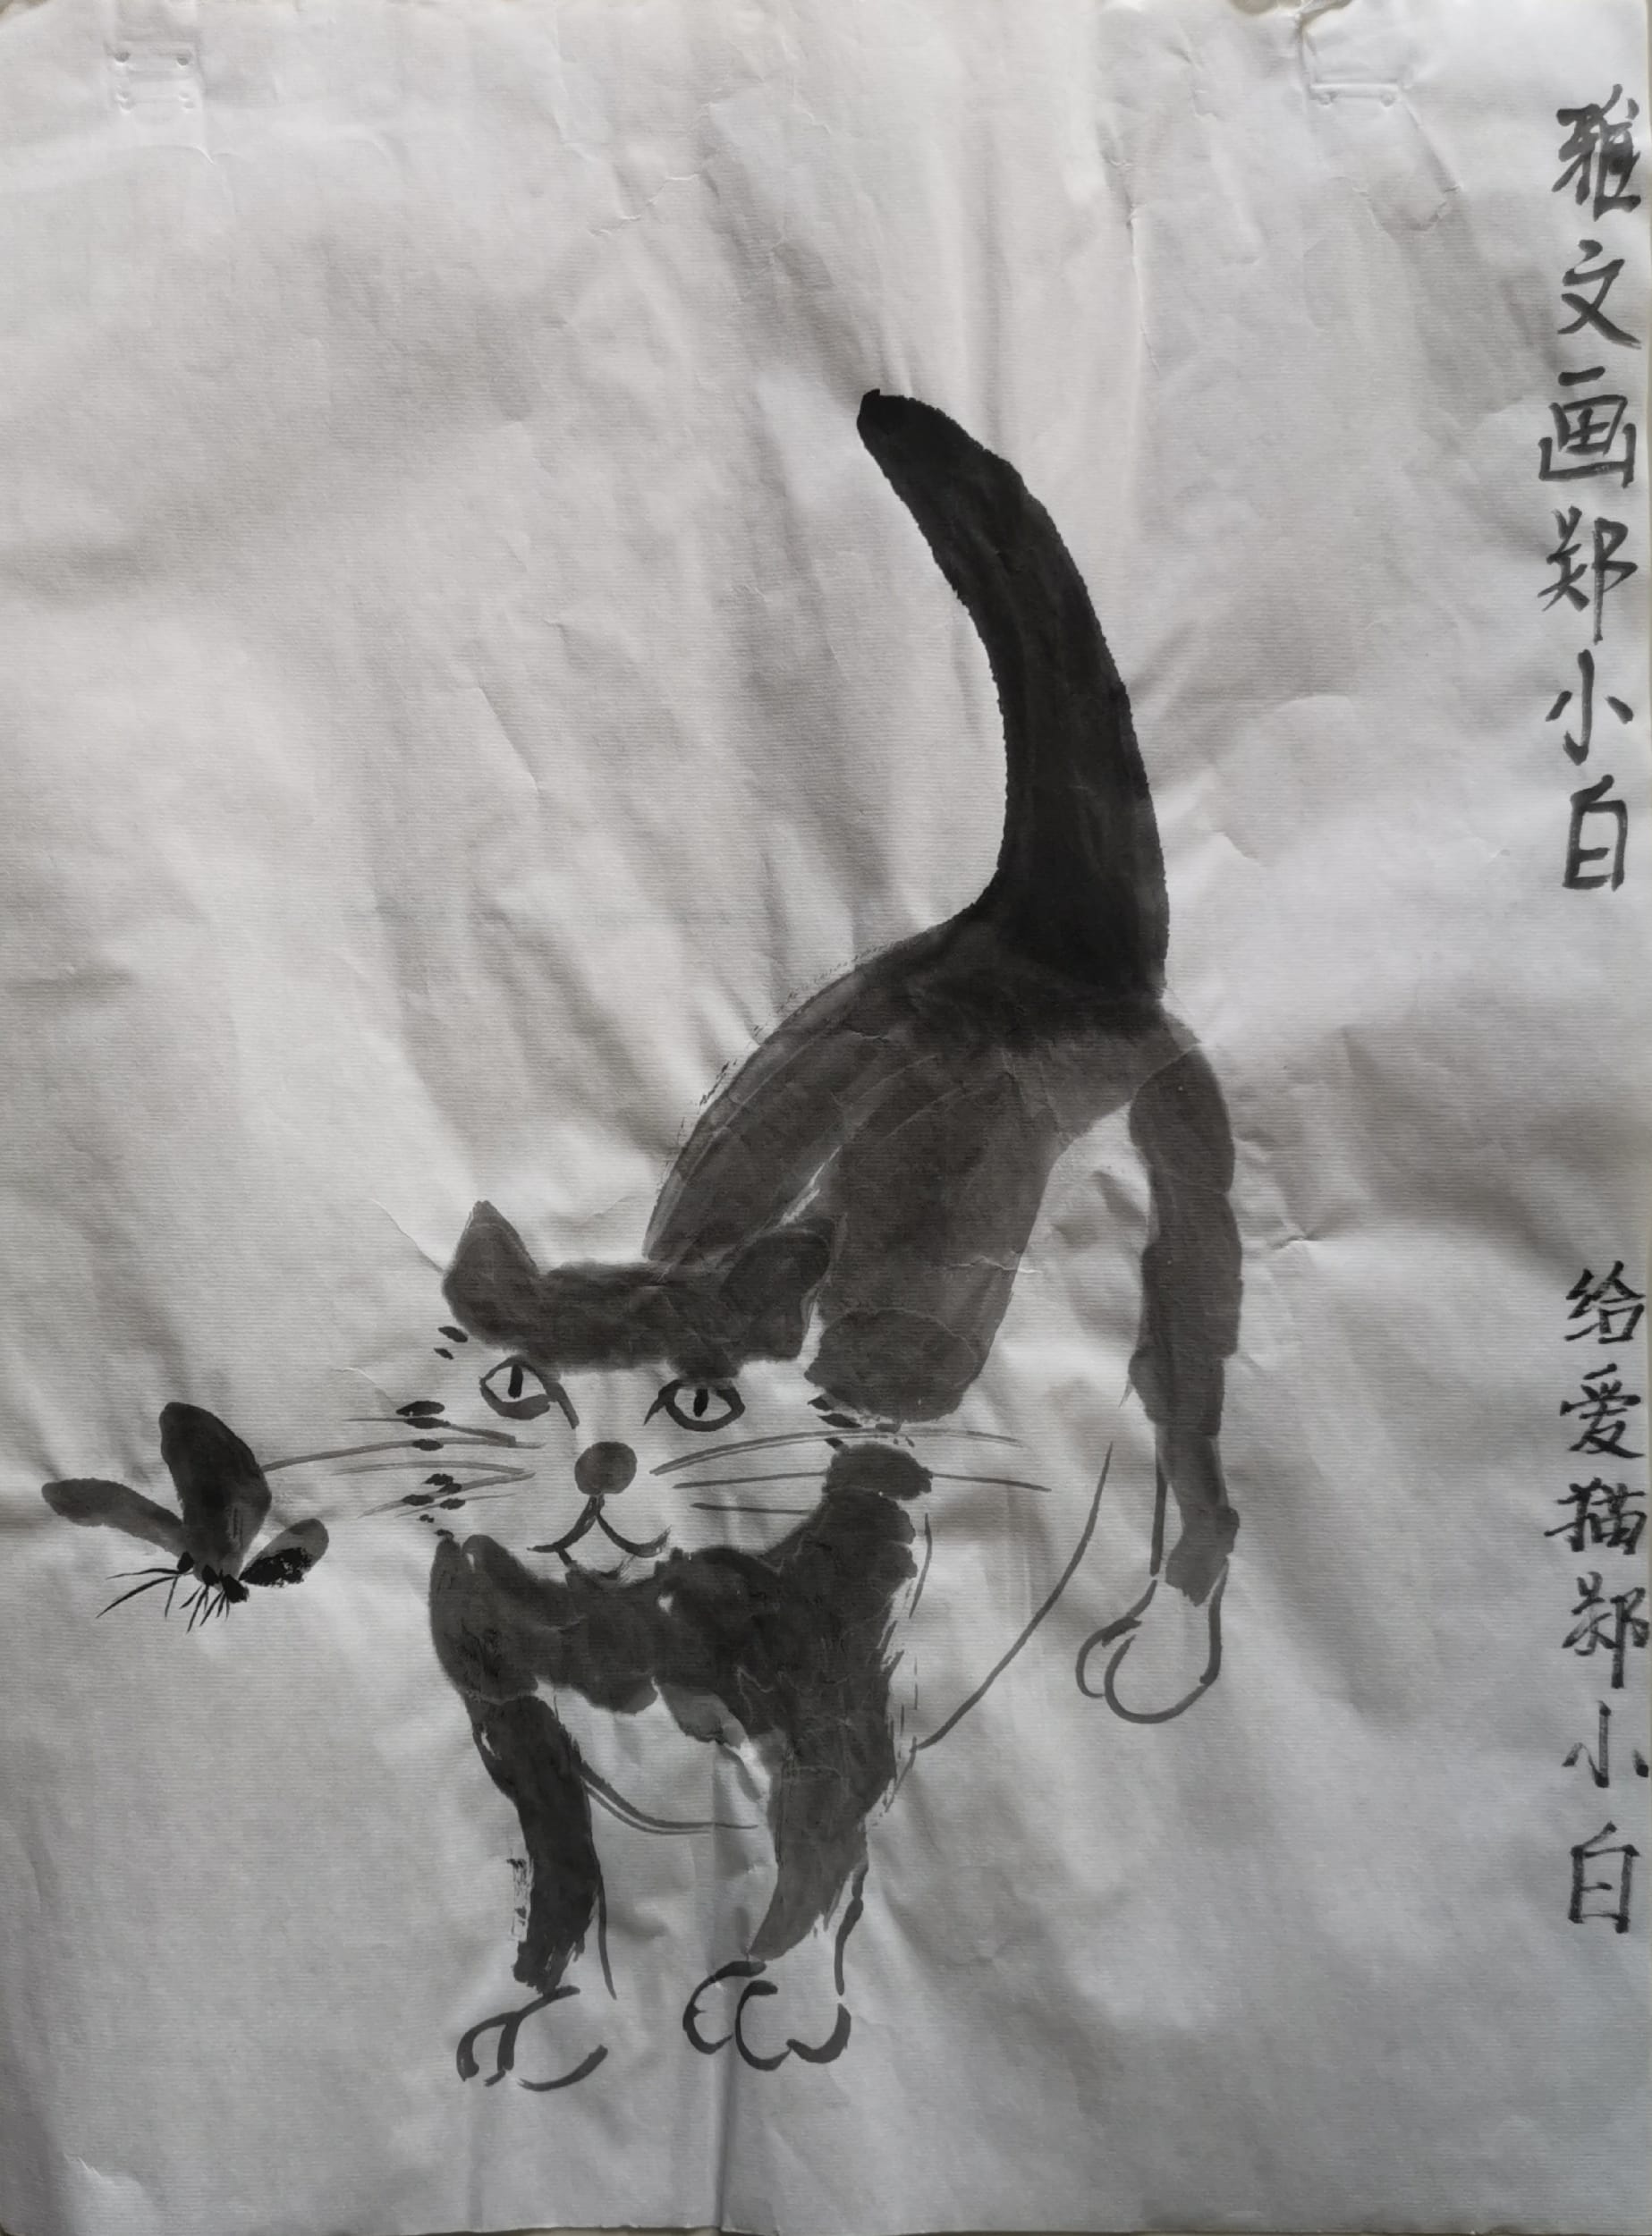 雅文画郑小白
给爱猫郑小白